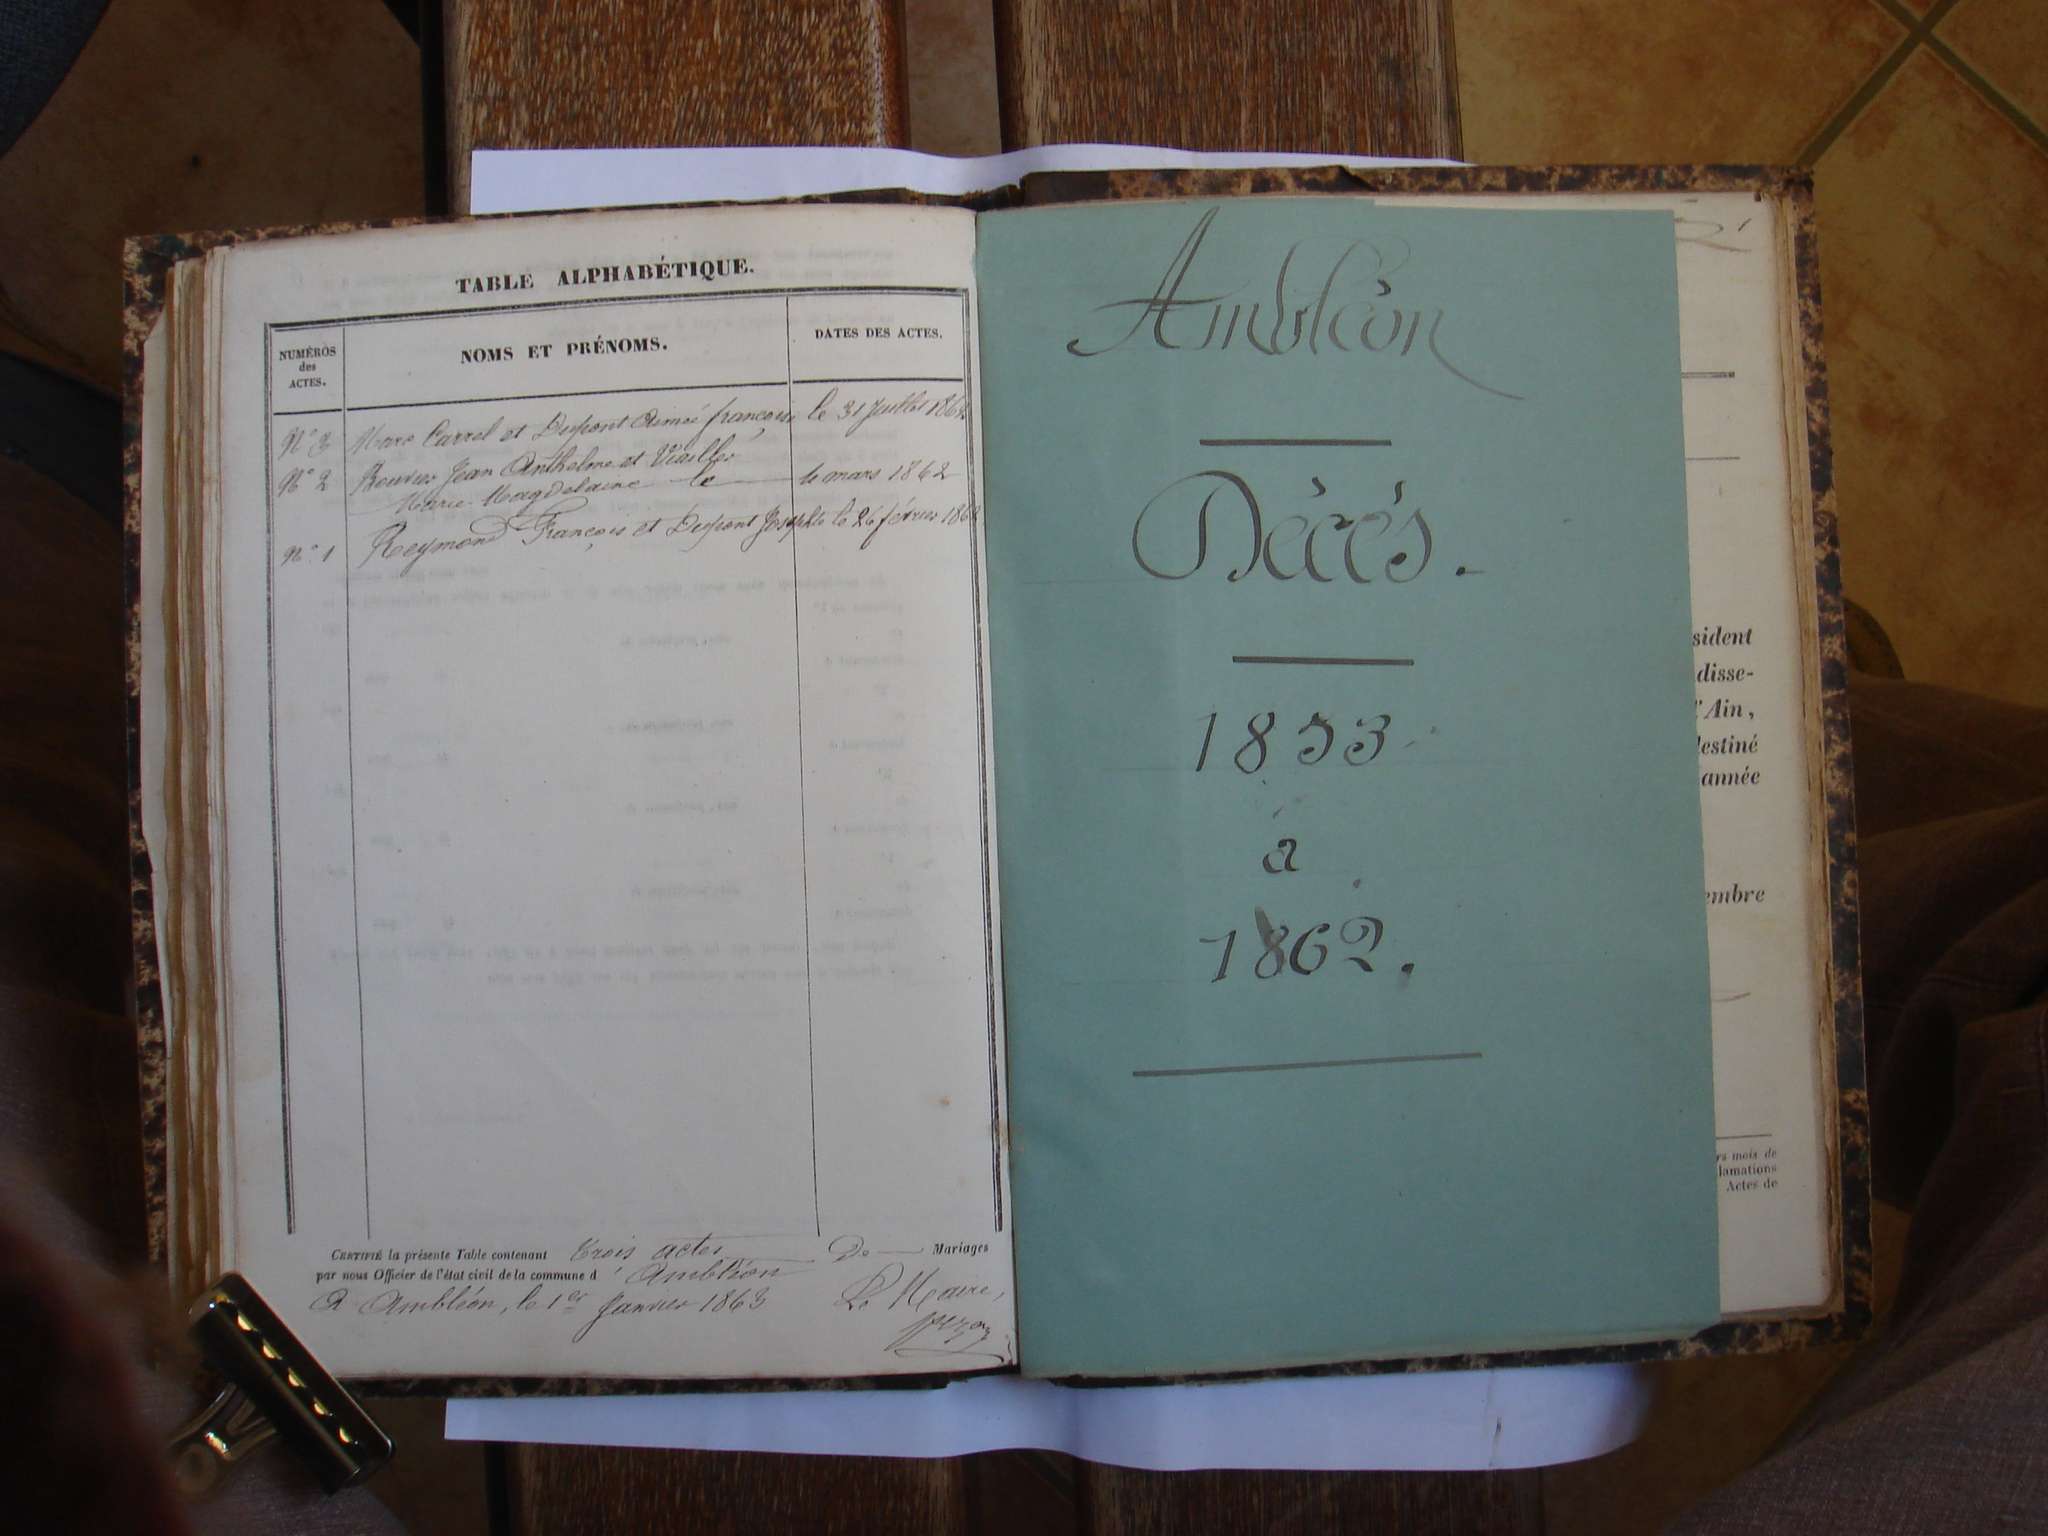 TABLE ALPHABÉTIQUE.
NUMÉROS
des
ACTES.
NOMS ET PRÉNOMS.
DATES DES ACTES.
N° 3 Marc Carrel et Dupont Aimée françoise le 31 Juillet 1862
N° 2 Bouvier Jean Anthelme et Viallet
Marie Magdelaine le mars 1862
N° 1 Reymond François et Dupont Josephte le 26 février 1862
CERTIFIÉ la présente Table contenant trois actes De Mariages
par nous Officier de l'état civil de la commune d' Ambléon
A Ambléon, le 1er Janvier 1863
Le Maire,
Ambléon
Décés.
1853
a
1862.
sident
disse-
l'Ain,
destiné
année
embre
rs mois de
lamations
Actes de